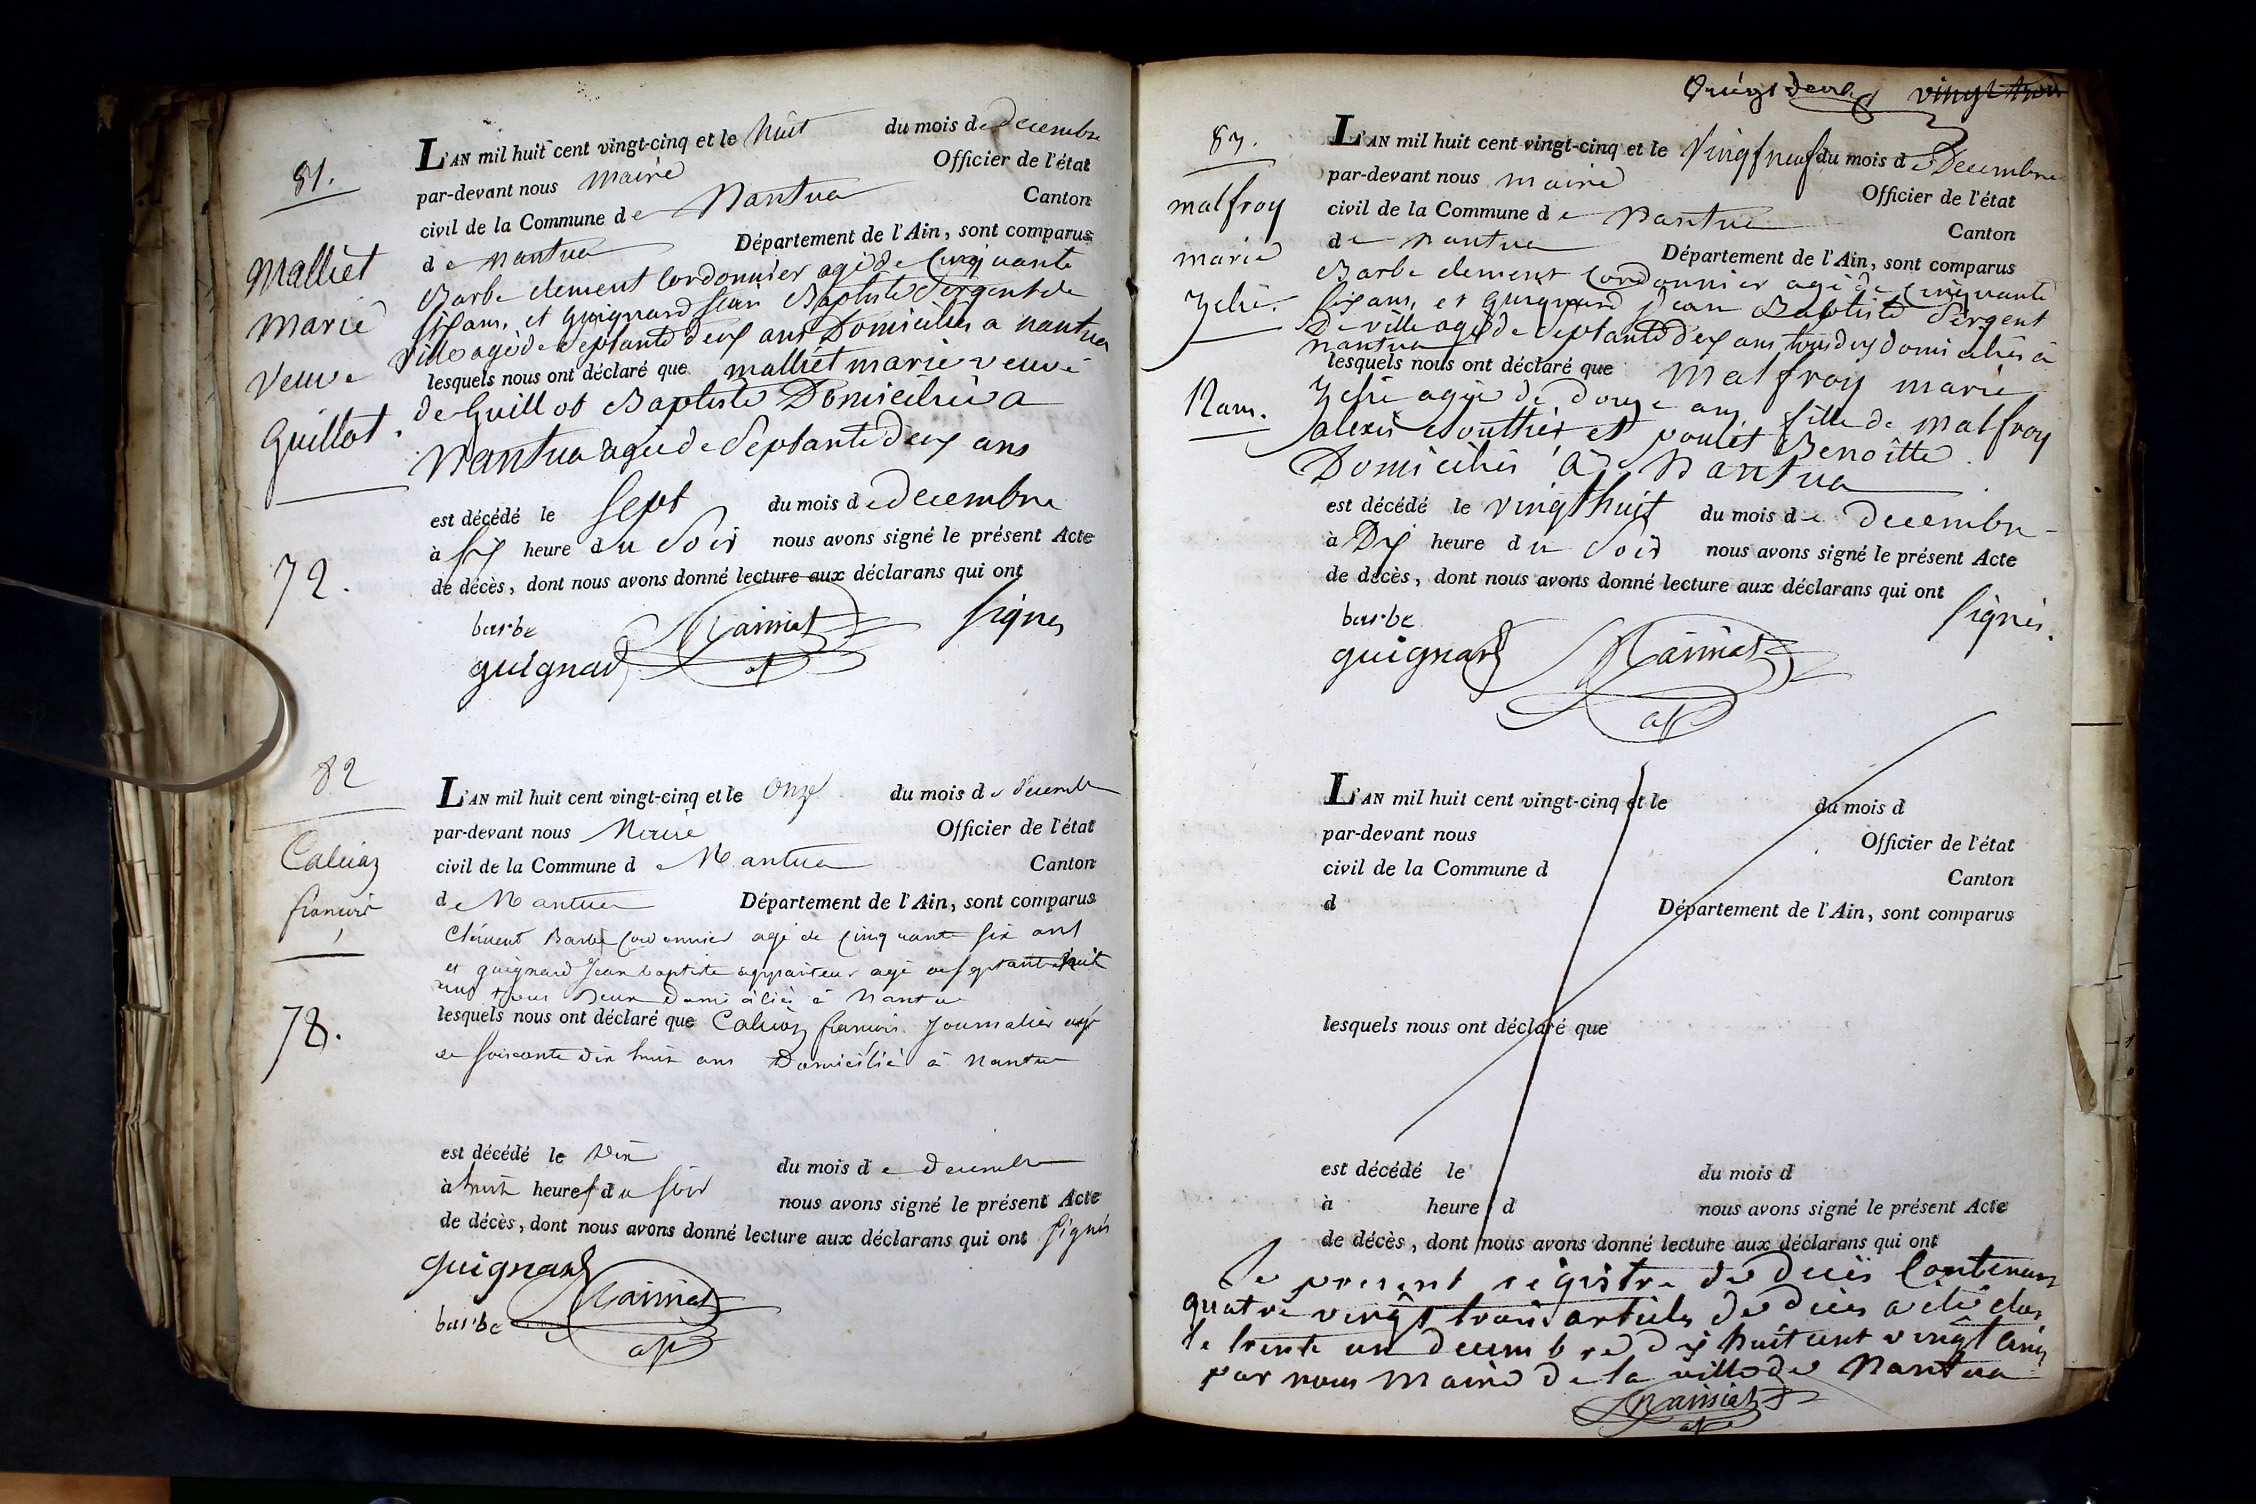 81.
Malliet
Marie
veuve
Guillot.
72.
L'AN mil huit cent vingt-cinq et le huit du mois de Decembre
par-devant nous Maire Officier de l'état
civil de la Commune de Nantua Canton
de Nantua Département de l'Ain, sont comparus
Barbe clement Cordonnier agé de Cinquante
six ans, et Guignard Jean Baptiste Sergent de
ville agé de septante deux ans Domiciliés a nantua
lesquels nous ont déclaré que malliet marie veuve
de Guillot Baptiste Domiciliée a
Nantua agée de Septante Deux ans
est décédé le Sept du mois de Decembre
à six heure du Soir nous avons signé le présent Acte
de décès, dont nous avons donné lecture aux déclarans qui ont
signes
barbe
guignard
82
Calviaz
francois
78.
L'AN mil huit cent vingt-cinq et le Onze du mois de décembre
par-devant nous Maire Officier de l'état
civil de la Commune de Nantua Canton
de Nantua Département de l'Ain, sont comparus
Clément Barbe Cordonnier agé de Cinquante six ans
et guignard Jean baptiste appariteur agé de septante huit
ans tous Deux domiciliés à Nantua
lesquels nous ont déclaré que Calviaz francois Journalier agé
de soixante dix huit ans Domicilié à Nantua
est décédé le Dix du mois de decembre
à huit heures du soir nous avons signé le présent Acte
de décès, dont nous avons donné lecture aux déclarans qui ont signés
guignard
barbe
vingt trois
83.
malfroy
marie
Zelie.
12 ans.
L'AN mil huit cent vingt-cinq et le Vingt neuf du mois de Decembre
par-devant nous maire Officier de l'état
civil de la Commune de Nantua Canton
de Nantua Département de l'Ain, sont comparus
Barbe clement Cordonnier agé de Cinquante
six ans, et Guignard jean Baptiste Sergent
De ville agé de septante deux ans tous deux domiciliés à
nantua
lesquels nous ont déclaré que Malfroy marie
Zelie agée de douze ans fille de Malfroy
alexis et poulet Benoitte
Domiciliés à Nantua
est décédé le vingt huit du mois de decembre
à Dix heure du Soir nous avons signé le présent Acte
de décès, dont nous avons donné lecture aux déclarans qui ont
signés.
barbe
guignard
L'AN mil huit cent vingt-cinq et le du mois d
par-devant nous Officier de l'état
civil de la Commune d Canton
d Département de l'Ain, sont comparus
lesquels nous ont déclaré que
est décédé le du mois d
à heure d nous avons signé le présent Acte
de décès, dont nous avons donné lecture aux déclarans qui ont
Le present registre de décès Contenant
quatre vingt trois articles de décès a été clos
le trente un decembre dix huit cent vingt cinq
par nous Maire De la ville de Nantua